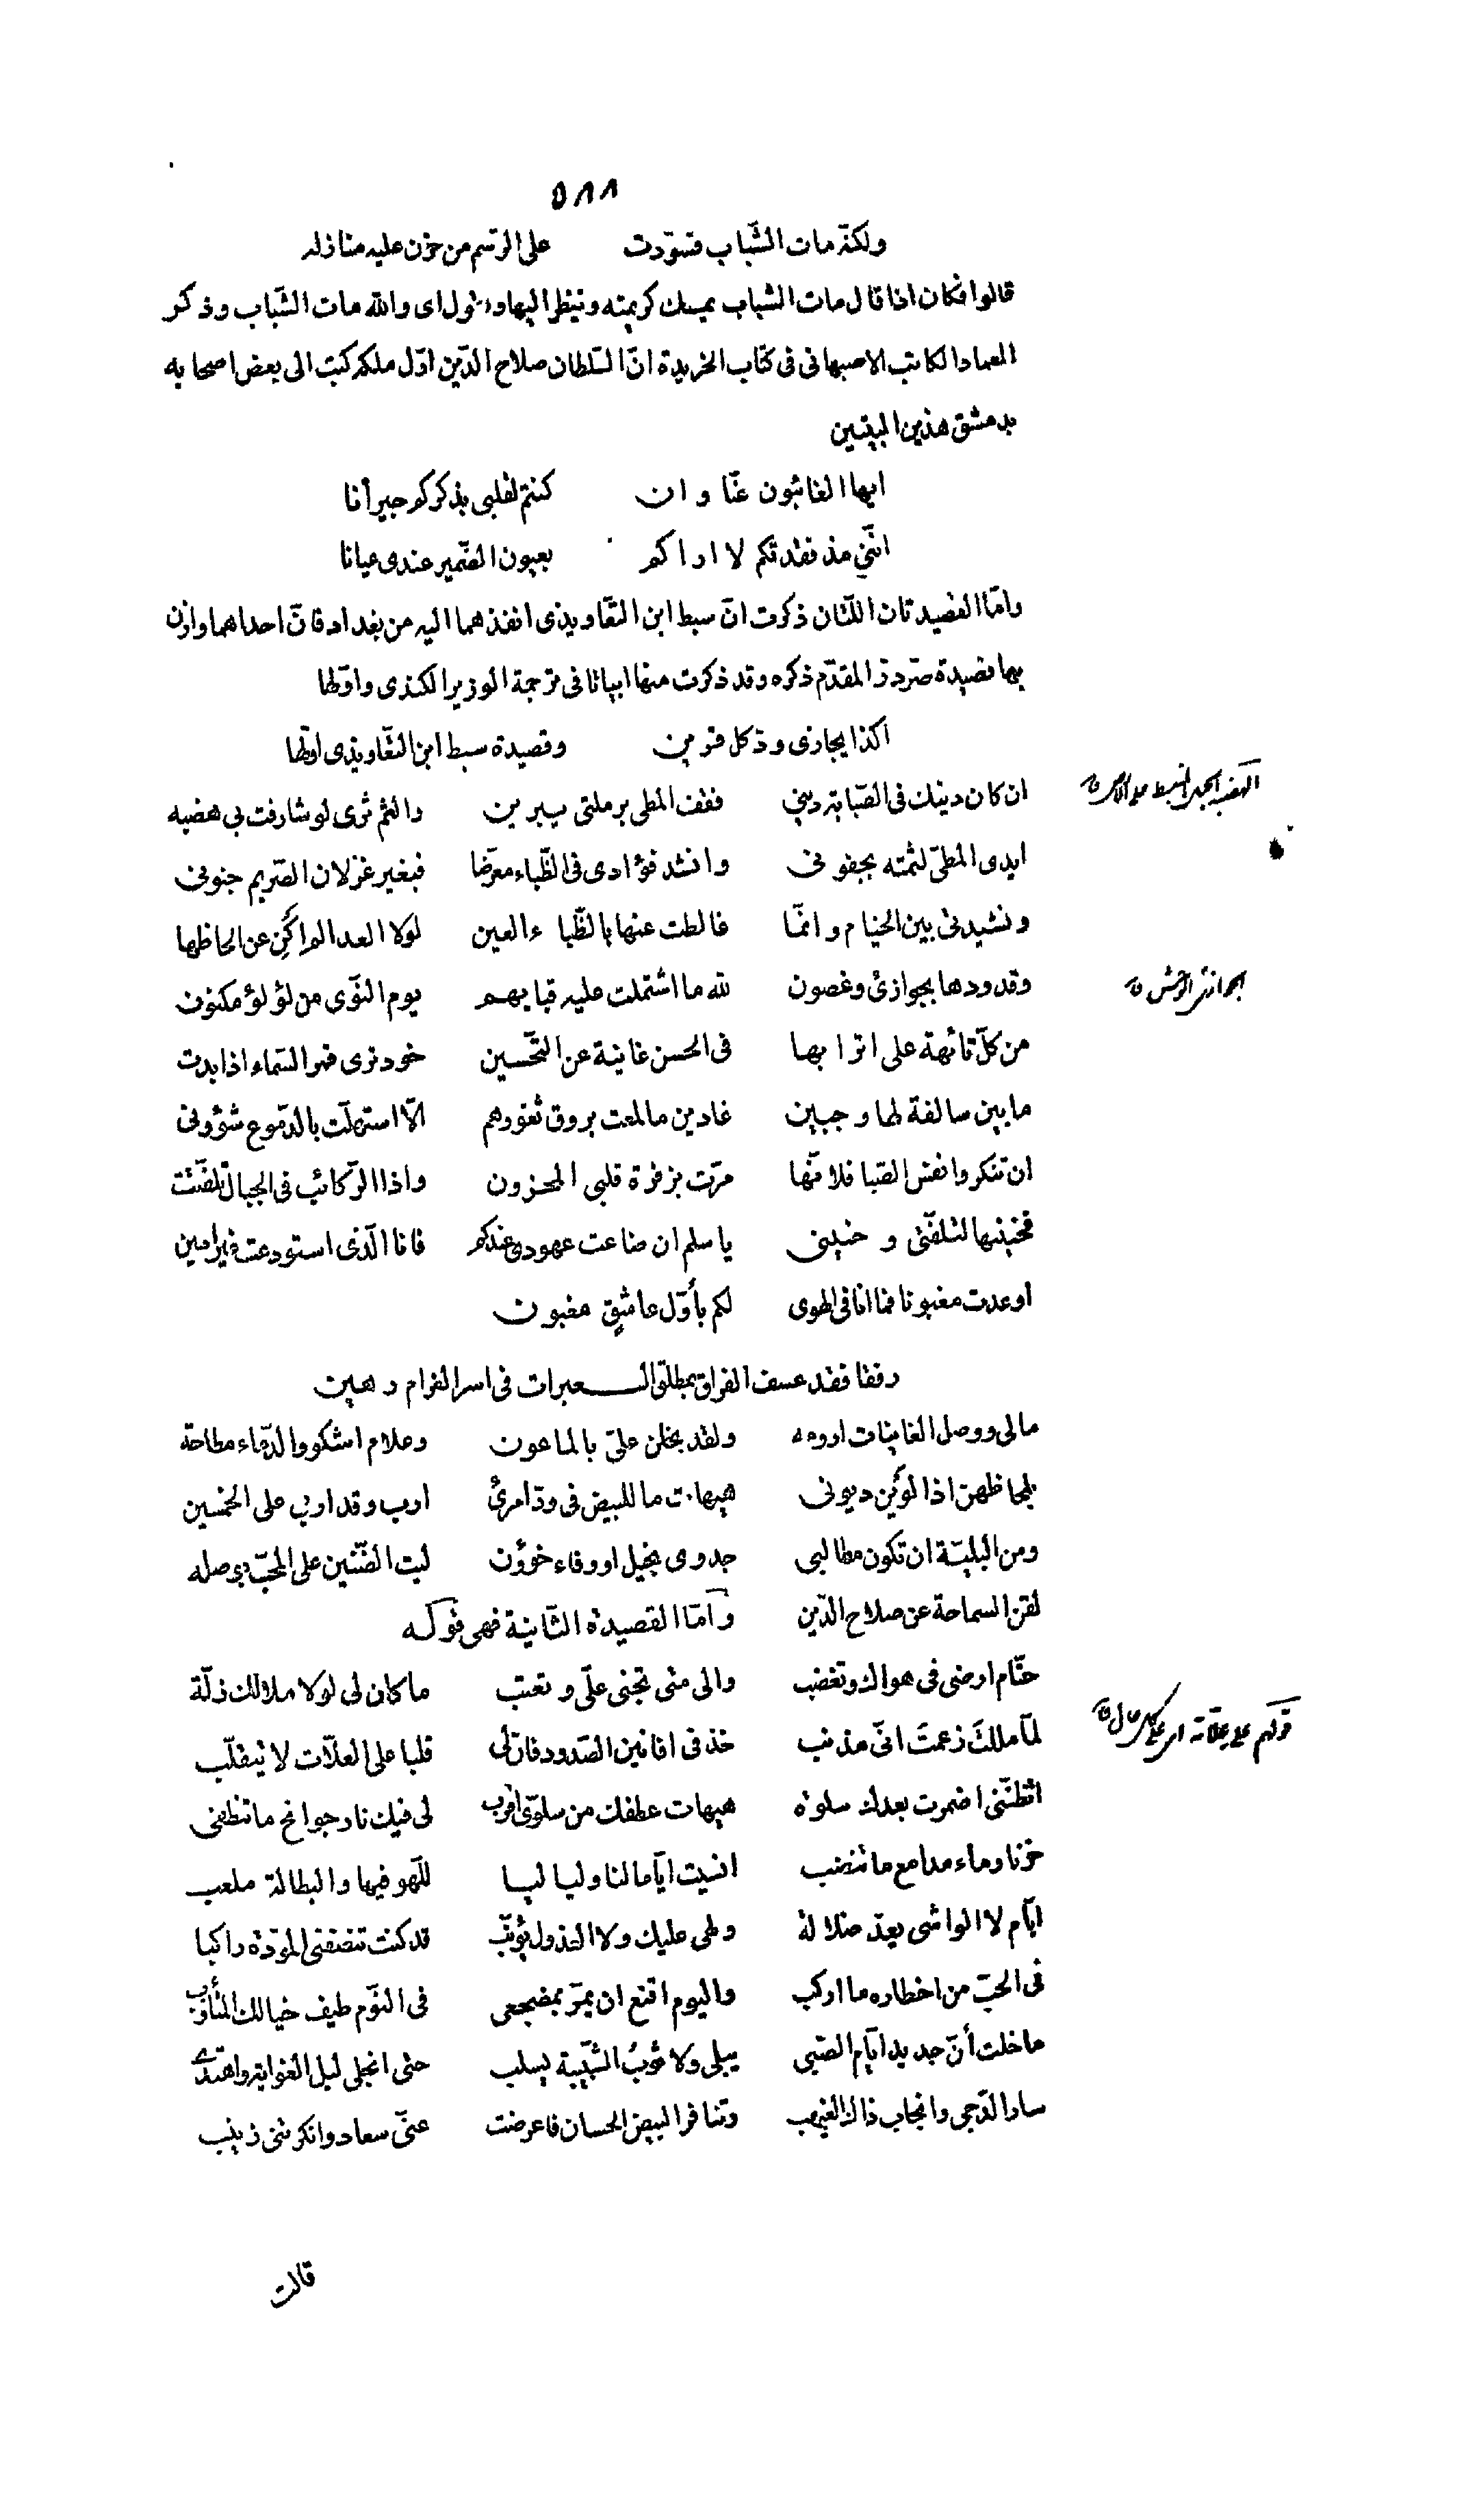 ٥٨٨
ولكنّه مات الشّباب فسوّدت على الرّسم من حزن عليه منازله
قالوا فكان اذا قال مات الشباب يمسك كريمته وينظر اليها ويقول اى والله مات الشّباب وذكر
العماد الكاتب الاصبهانى فى كتاب الخريدة انّ السّلطان صلاح الدّين اوّل ملكه كتب الى بعض اصحابه
بدمشق هذين البيتين
ايها الغائبون عنّا وان كنتم لقلبى بذكركم جيرأنا
انّنى مذ فقدتكم لا اراكم بعيون الضّمير عندى عيانا
وامّا القصيدتان اللّتان ذكرت انّ سبط ابن التعّاويذى انفذهما اليه من بغداد فانّ احداهما وازن
بها قصيدة صرّدرّ المقدّم ذكره وقد ذكرت منها ابياتا فى ترجمة الوزير الكندى واوّلها
اكذا يجازى ودّ كل قرين وقصيدة سبط ابن التعّاويذى اوّلها
ان كان دينك فى الصّبابة دينى فقف المطى برملتى يبرين والثم ثرى لو شارفت بى هضبه
الهضبة الجبل المنبسط على الارض
ايدى المطىّ لثمته بجفونى وانشد فؤادى فى الظّباء معرّضا فبغير غزلان الصّريم جنونى
ونشيدتى بين الخيام وانمّا غالطت عنها بالظّباء العين لولا العدا لم اكْنِ عن الحاظها
وقدودها بجوازئ وغصون لله ما اشتملت عليه قبابهم يوم النّوى من لؤلؤ مكنون
من كلّ تائهة على اترابها فى الحسن غانية عن التّحسين خود ترى قمر السّماء اذا بدت
ما بين سالفة لها وجبين غادين ما لمعت بروق ثغورهم الّا استهلّت بالدّموع شؤونى
ان تنكروا نفس الصّبا فلانّها مرّت بزفرة قلبى المحزون واذا الرّكائب فى الجبال تلفّتت
فحنينها لتلفّتى وحنينى يا سلم ان ضاعت عهودى عندكم فانا الّذى استودعت غير امين
او عدت مغبونا فما انا فى الهوى لكم بأوّل عاشق مغبون
رفقا فقد عسف الفراق بمطلق العبرات فى اسر الغرام رهين
مالى ووصل الغانيات ارومه ولقد بخلن علىّ بالماعون وعلام اشكو والدّماء مطاحة
بلحاظهن اذا لوَيْن ديونى هيهات ما للبيض فى ودّ امرئ ارب وقد اربى على الخمسين
ومن البليّة ان تكون مطالبى جدوى بخيل او وفاء خؤون ليت الضّنين على المحبّ بوصله
لقن السماحة عن صلاح الدّين وأمّا القصيدة الثّانية فهى قوله
حتّام ارضى فى هواك وتغضب والى متى تجنى علىّ وتعتب ما كان لى لولا ملالك زلّة
لمّا مللتَ زعمتَ انّى مذنب خذ فى افانين الصّدود فانّ لى قلبا على العلّات لا يتقلّب
اتظنّنى اضمرت بعدك سلوة هيهات عطفك من سلوّى اقرب لى فيك نار جوانح ما تنطفى
حزنا وماء مدامع ما تنضب انسيت ايّاما لنا ولياليا للّهو فيها والبطالة ملعب
ايّام لا الواشى يعدّ ضلالة ولهى عليك ولا العذول يؤنّب قد كنت تنصفنى المودّة راكبا
فى الحبّ من اخطاره ما اركب واليوم اقنع ان يمرّ بمضجعى فى النّوم طيف خيالك المتأوّب
ما خلت أنّ جديد ايّام الصّبى يبلى ولا ثوبُ الشّبيبة يسلب حتى انجلى ليل الغواية واهتدى
سارا لدّجى وانجاب ذاك الغيهب وتنافر البيض الحسان فاعرضت عنّى سعاد وانكرتنى زينب
قالت